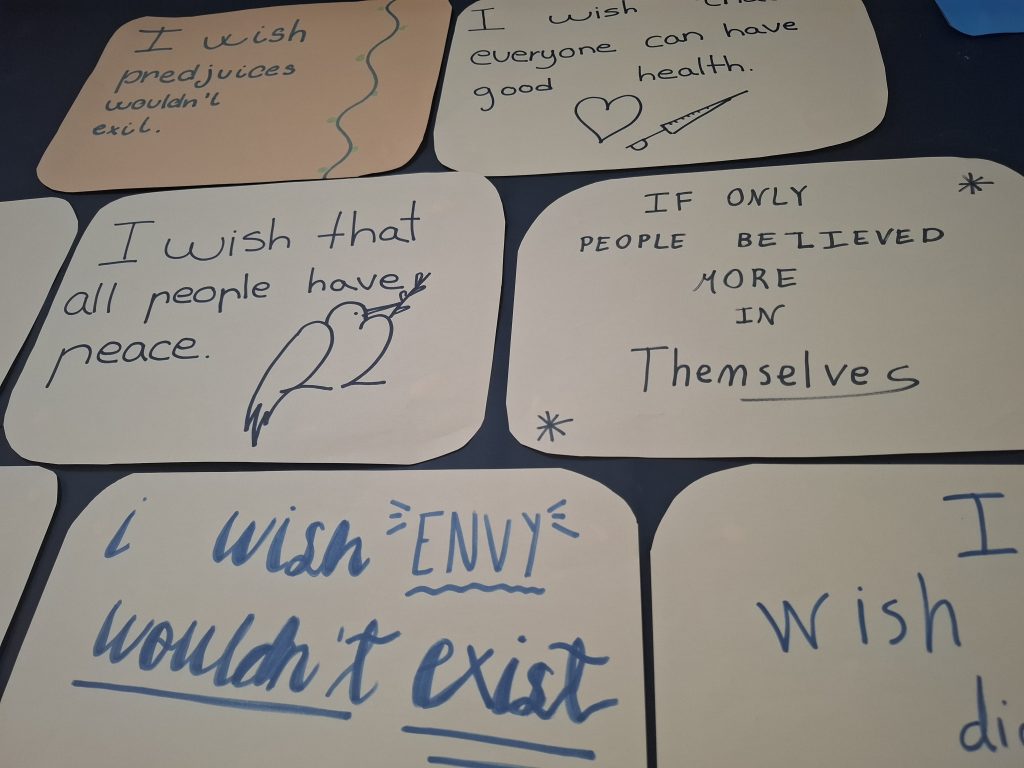 I wish
predjuices
wouldn't
exit.
I wish
everyone can have
good health.
I wish that
all people have
peace.
IF ONLY
PEOPLE BELIEVED
MORE
IN
Themselves
i wish ENVY
wouldn't exist
I
wish